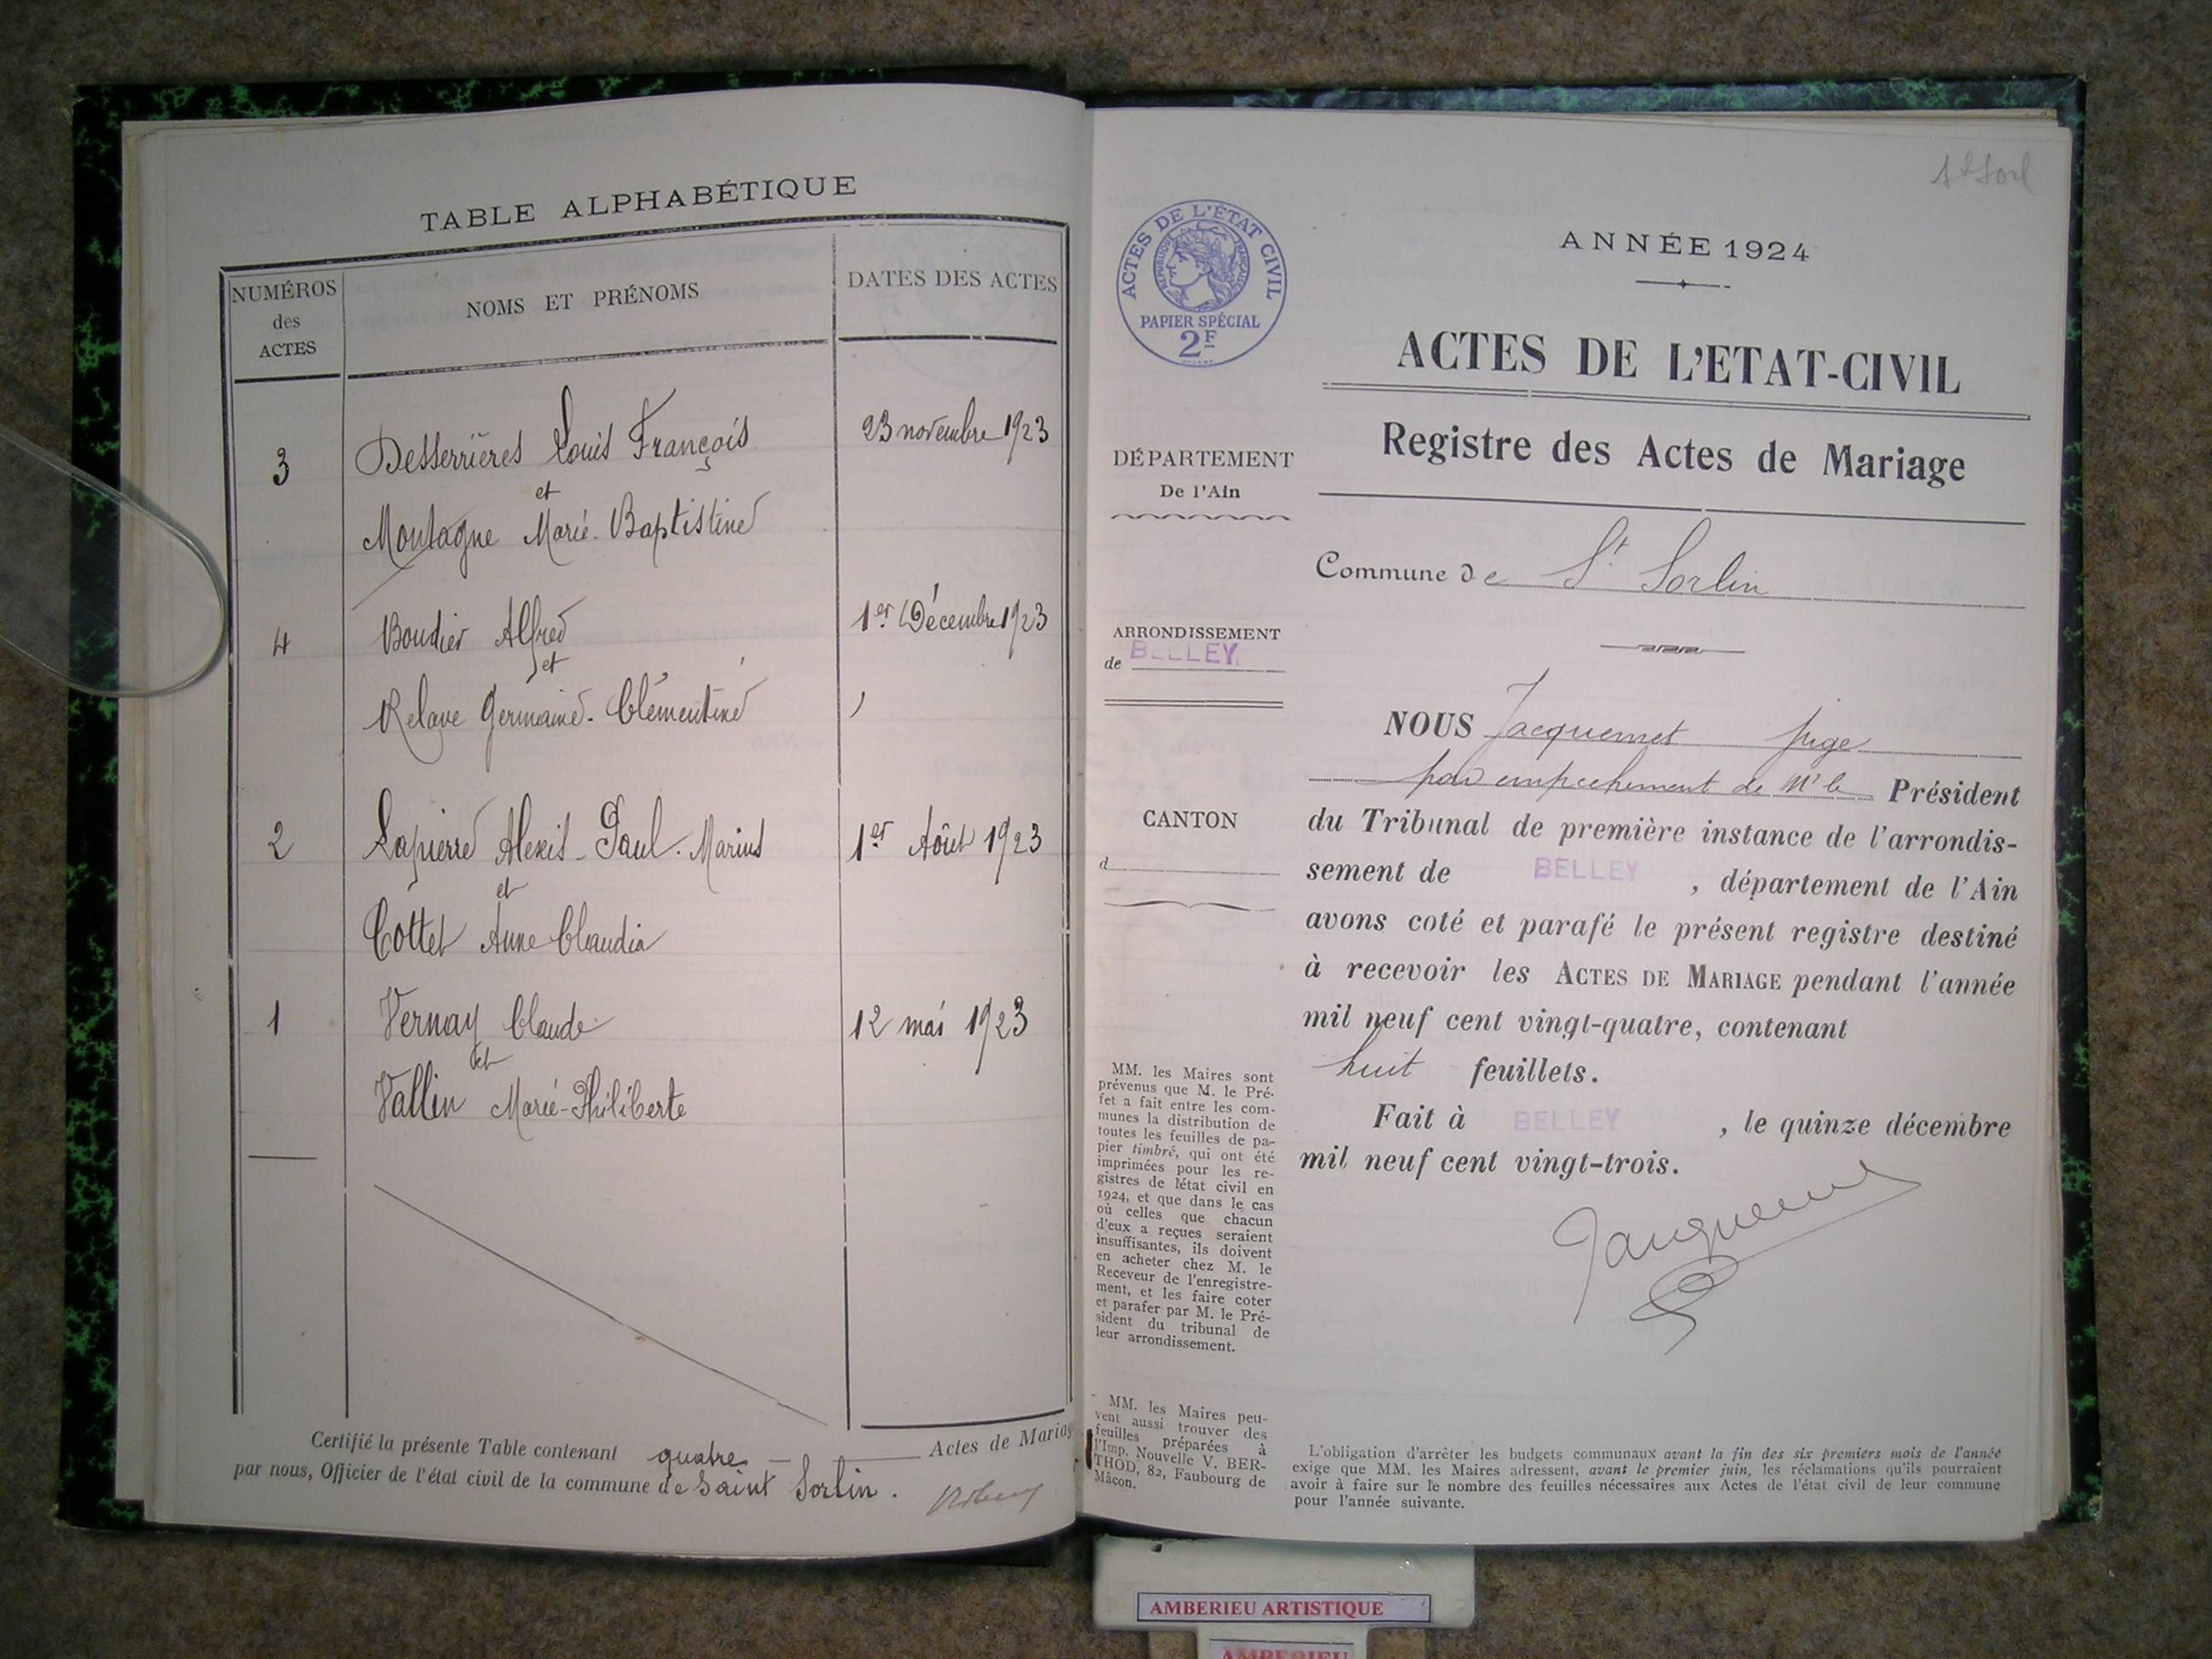 TABLE ALPHABÉTIQUE
NUMÉROS des ACTES
NOMS ET PRÉNOMS
DATES DES ACTES
3 Desserrières Louis François 23 novembre 1923
et
Montagne Marie-Baptistine
4 Boudier Alfred 1er Décembre 1923
et
Relave Germaine-Clémentine
2 Lapierre Alexis-Paul-Marius 1er Août 1923
et
Cottet Anne Claudia
1 Vernay Claude 12 mai 1923
et
Vallin Marie-Philiberte
Certifié la présente Table contenant quatre Actes de Mariag
par nous, Officier de l'état civil de la commune de Saint Sorlin.
St Sorl
ACTES DE L'ÉTAT CIVIL
RÉPUBLIQUE FRANÇAISE
PAPIER SPÉCIAL
2F
ANNÉE 1924
ACTES DE L'ETAT-CIVIL
Registre des Actes de Mariage
DÉPARTEMENT
De l'Ain
Commune de St Sorlin
ARRONDISSEMENT
de BELLEY
CANTON
d
NOUS Jacquemet juge
par empechement de Mr le Président
du Tribunal de première instance de l'arrondis-
sement de BELLEY, département de l'Ain
avons coté et parafé le présent registre destiné
à recevoir les ACTES DE MARIAGE pendant l'année
mil neuf cent vingt-quatre, contenant
huit feuillets.
Fait à BELLEY, le quinze décembre
mil neuf cent vingt-trois.
Jacquemet
MM. les Maires sont
prévenus que M. le Pré-
fet a fait entre les com-
munes la distribution de
toutes les feuilles de pa-
pier timbré, qui ont été
imprimées pour les re-
gistres de l'état civil en
1924, et que dans le cas
où celles que chacun
d'eux a reçues seraient
insuffisantes, ils doivent
en acheter chez M. le
Receveur de l'enregistre-
ment, et les faire coter
et parafer par M. le Pré-
sident du tribunal de
leur arrondissement.
MM. les Maires peu-
vent aussi trouver des
feuilles préparées à
l'Imp. Nouvelle V. BER-
THOD, 82, Faubourg de
Mâcon.
L'obligation d'arrêter les budgets communaux avant la fin des six premiers mois de l'année
exige que MM. les Maires adressent, avant le premier juin, les réclamations qu'ils pourraient
avoir à faire sur le nombre des feuilles nécessaires aux Actes de l'état civil de leur commune
pour l'année suivante.
AMBERIEU ARTISTIQUE
AMBERIEU